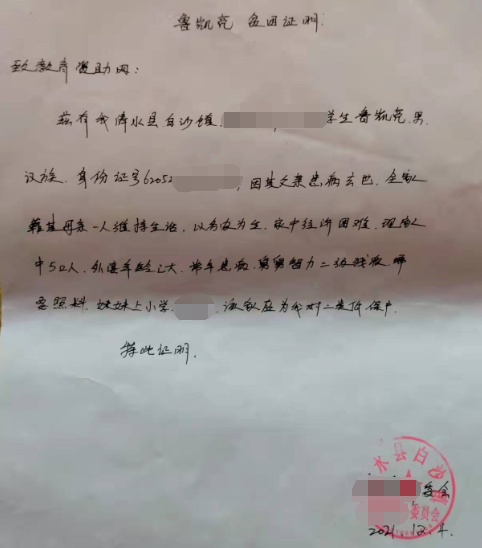 鲁凯亮 贫困证明
致教育资助网:
兹有我清水县白沙镇 学生鲁凯亮,男,
汉族,身份证号62052 ,因其父亲患病去世,全家
靠其母亲一人维持生活,以务农为生,家中经济困难,现家
中5口人,外婆年龄过大,常年患病,舅舅智力二级残疾,
需照料,妹妹上小学, 该家庭为我村二类低保户
特此证明.
水县白沙
委会
委员会
2021.12.4.